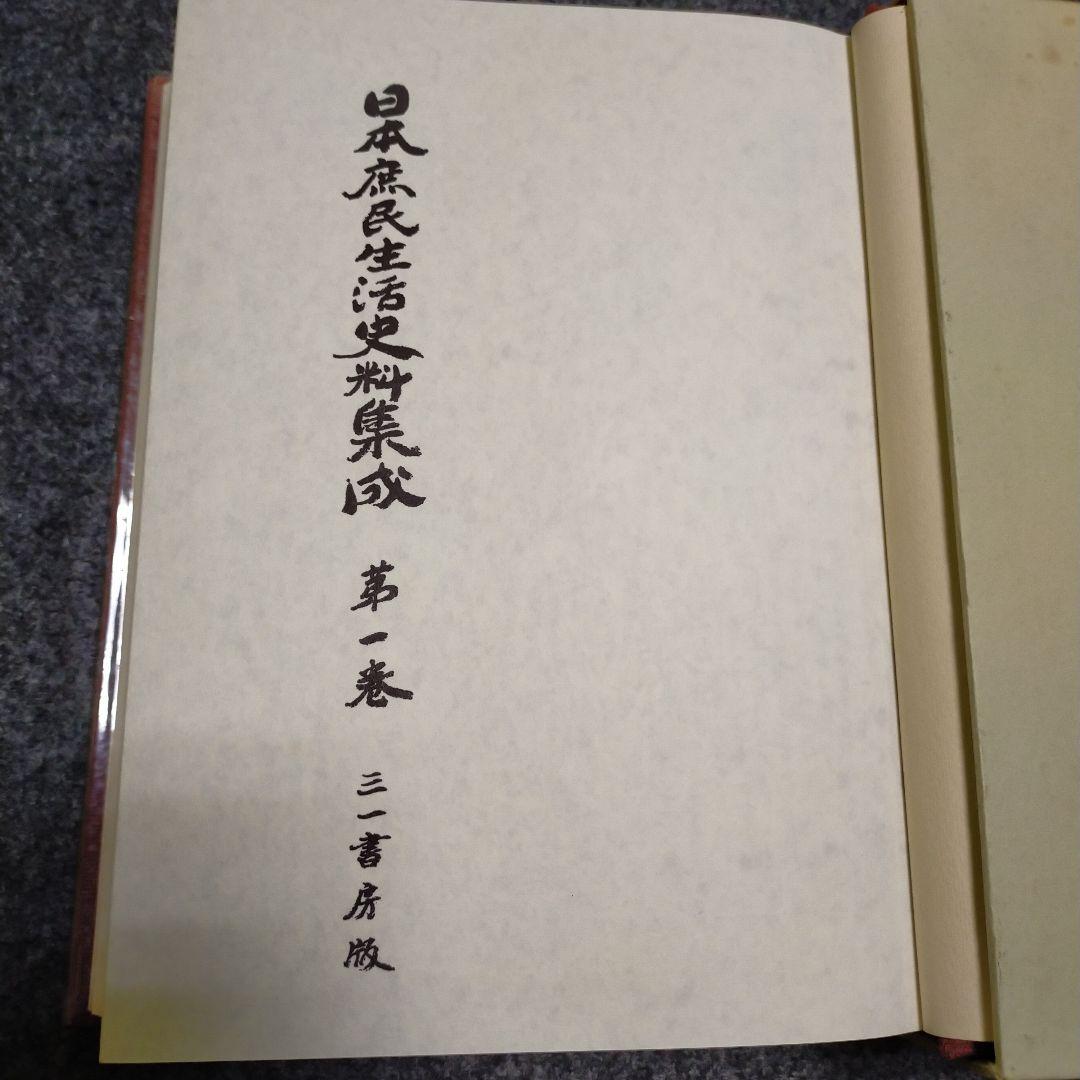 日本庶民生活史料集成 第一巻 三一書房版